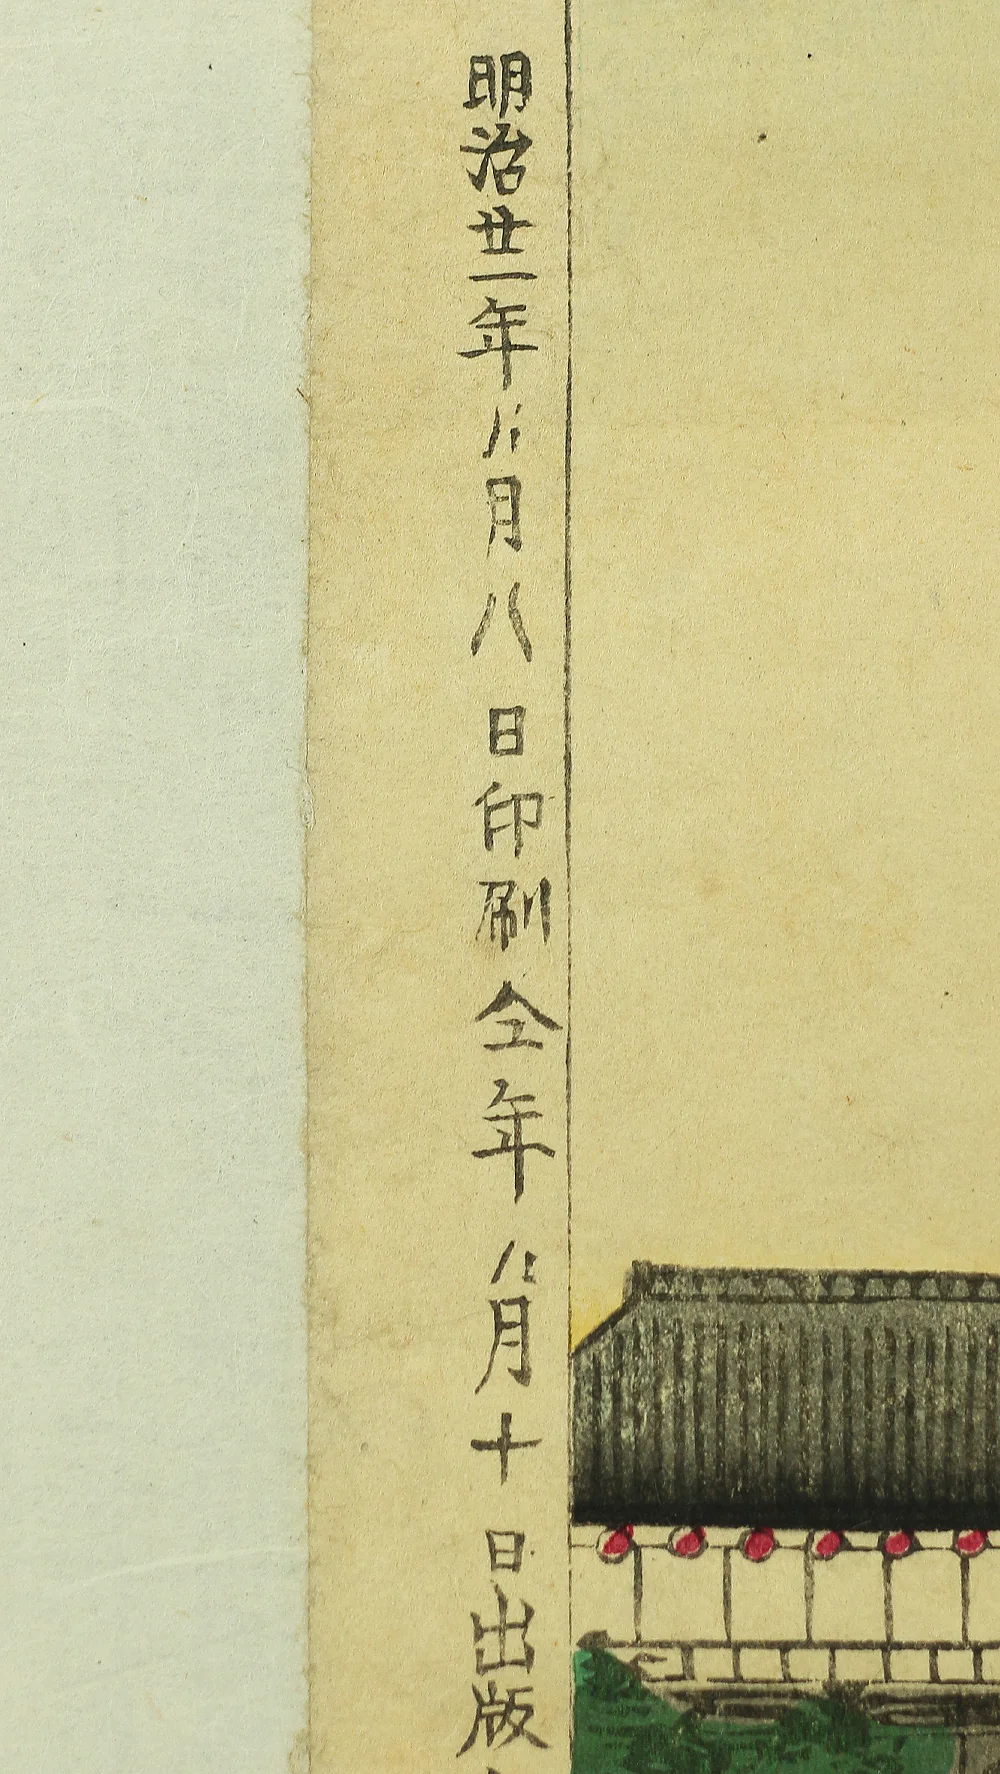 明治廿一年八月八日印刷仝年八月十日出版